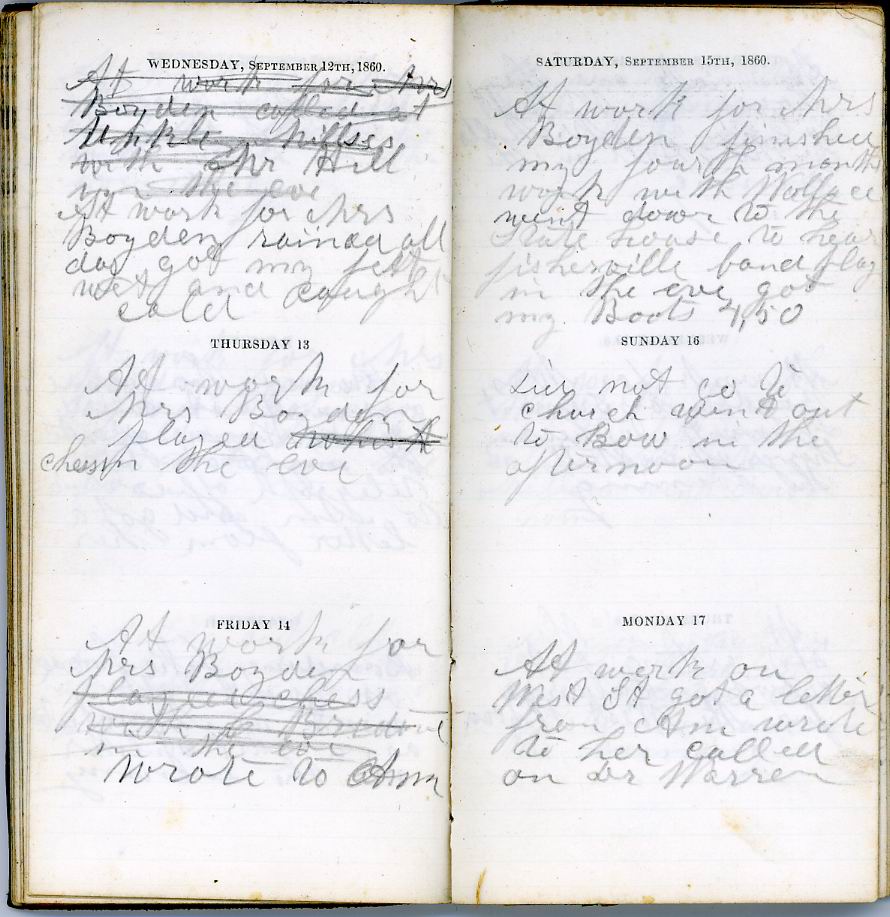 WEDNESDAY, SEPTEMBER 12TH, 1860.
At work for Mrs
Boyden called at
Unkle Hillses
with Mr Hill
in the eve
At work for Mrs
Boyden rained all
day got my feet
wet and caught
cold
THURSDAY 13
At work for
Mrs Boyden
played whist
chess in the eve
FRIDAY 14
At work for
Mrs Boyden
played chess
with
in the eve
Wrote to Ann
SATURDAY, SEPTEMBER 15TH, 1860.
At work for Mrs
Boyden finished
my fourth month
work with Wallace
went down to the
State house to hear
fisherville band play
in the eve got
my Boots 4,50
SUNDAY 16
Did not go to
church went out
to Bow in the
afternoon
MONDAY 17
At work on
West St got a letter
from Ann wrote
to her called
on Dr Warren